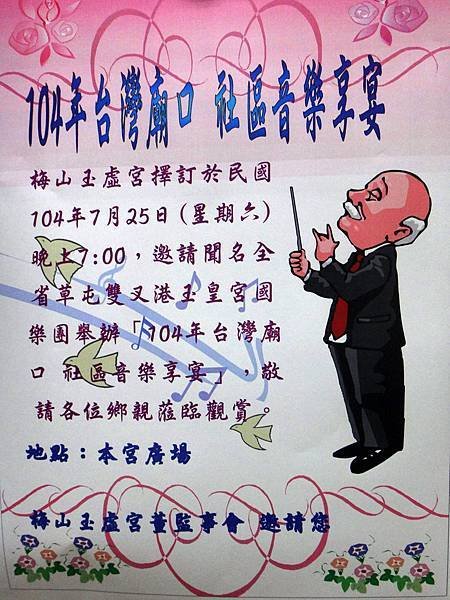 104年台灣廟口 社區音樂享宴
梅山玉虛宮擇訂於民國
104年7月25日(星期六)
晚上7:00，邀請聞名全
省草屯雙叉港玉皇宮國
樂團舉辦「104年台灣廟
口 社區音樂享宴」，敬
請各位鄉親蒞臨觀賞。
地點：本宮廣場
梅山玉虛宮董監事會 邀請您